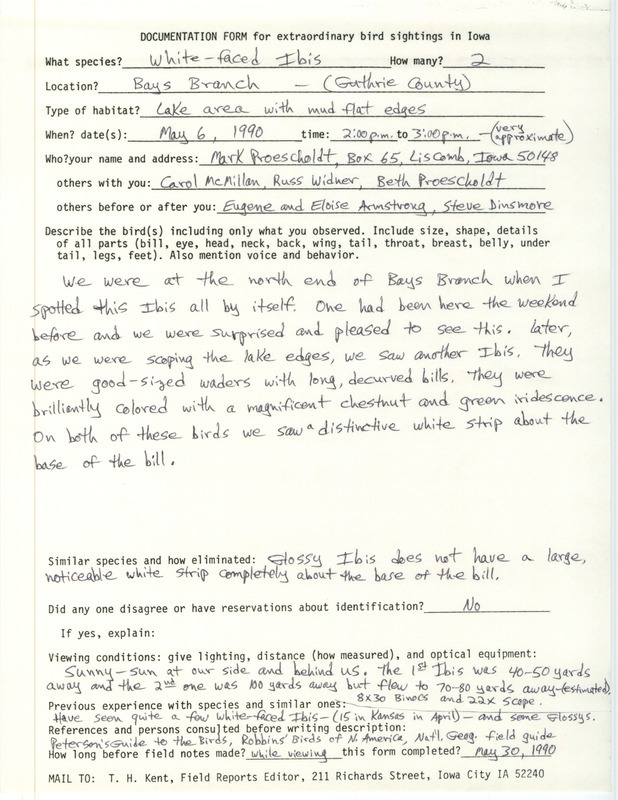 DOCUMENTATION FORM for extraordinary bird sightings in Iowa
What species? White-faced Ibis How many? 2
Location? Bays Branch - (Guthrie County)
Type of habitat? Lake area with mud flat edges
When? date(s): May 6, 1990 time: 2:00 p.m. to 3:00 p.m. - (very approximate)
Who?your name and address: Mark Proescholdt, Box 65, Liscomb, Iowa 50148
others with you: Carol McMillan, Russ Widner, Beth Proescholdt
others before or after you: Eugene and Eloise Armstrong, Steve Dinsmore
Describe the bird(s) including only what you observed. Include size, shape, details
of all parts (bill, eye, head, neck, back, wing, tail, throat, breast, belly, under
tail, legs, feet). Also mention voice and behavior.
We were at the north end of Bays Branch when I
spotted this Ibis all by itself. One had been here the weekend
before and we were surprised and pleased to see this. Later,
as we were scoping the lake edges, we saw another Ibis. They
were good-sized waders with long, decurved bills. They were
brilliantly colored with a magnificent chestnut and green iridescence.
On both of these birds we saw a distinctive white strip about the
base of the bill.
Similar species and how eliminated: Glossy Ibis does not have a large,
noticeable white strip completely about the base of the bill.
Did any one disagree or have reservations about identification? No
If yes, explain:
Viewing conditions: give lighting, distance (how measured), and optical equipment:
Sunny - sun at our side and behind us. The 1st Ibis was 40-50 yards
away and the 2nd one was 100 yards away but flew to 70-80 yards away-(estimated)
8x30 Binocs and 22x Scope.
Previous experience with species and similar ones:
Have seen quite a few White-faced Ibis - (15 in Kansas in April) - and some Glossys.
References and persons consulted before writing description:
Peterson's Guide to the Birds, Robbins' Birds of N. America, Nat'l. Geog. field guide
How long before field notes made? while viewing this form completed? May 30, 1990
MAIL TO: T. H. Kent, Field Reports Editor, 211 Richards Street, Iowa City IA 52240